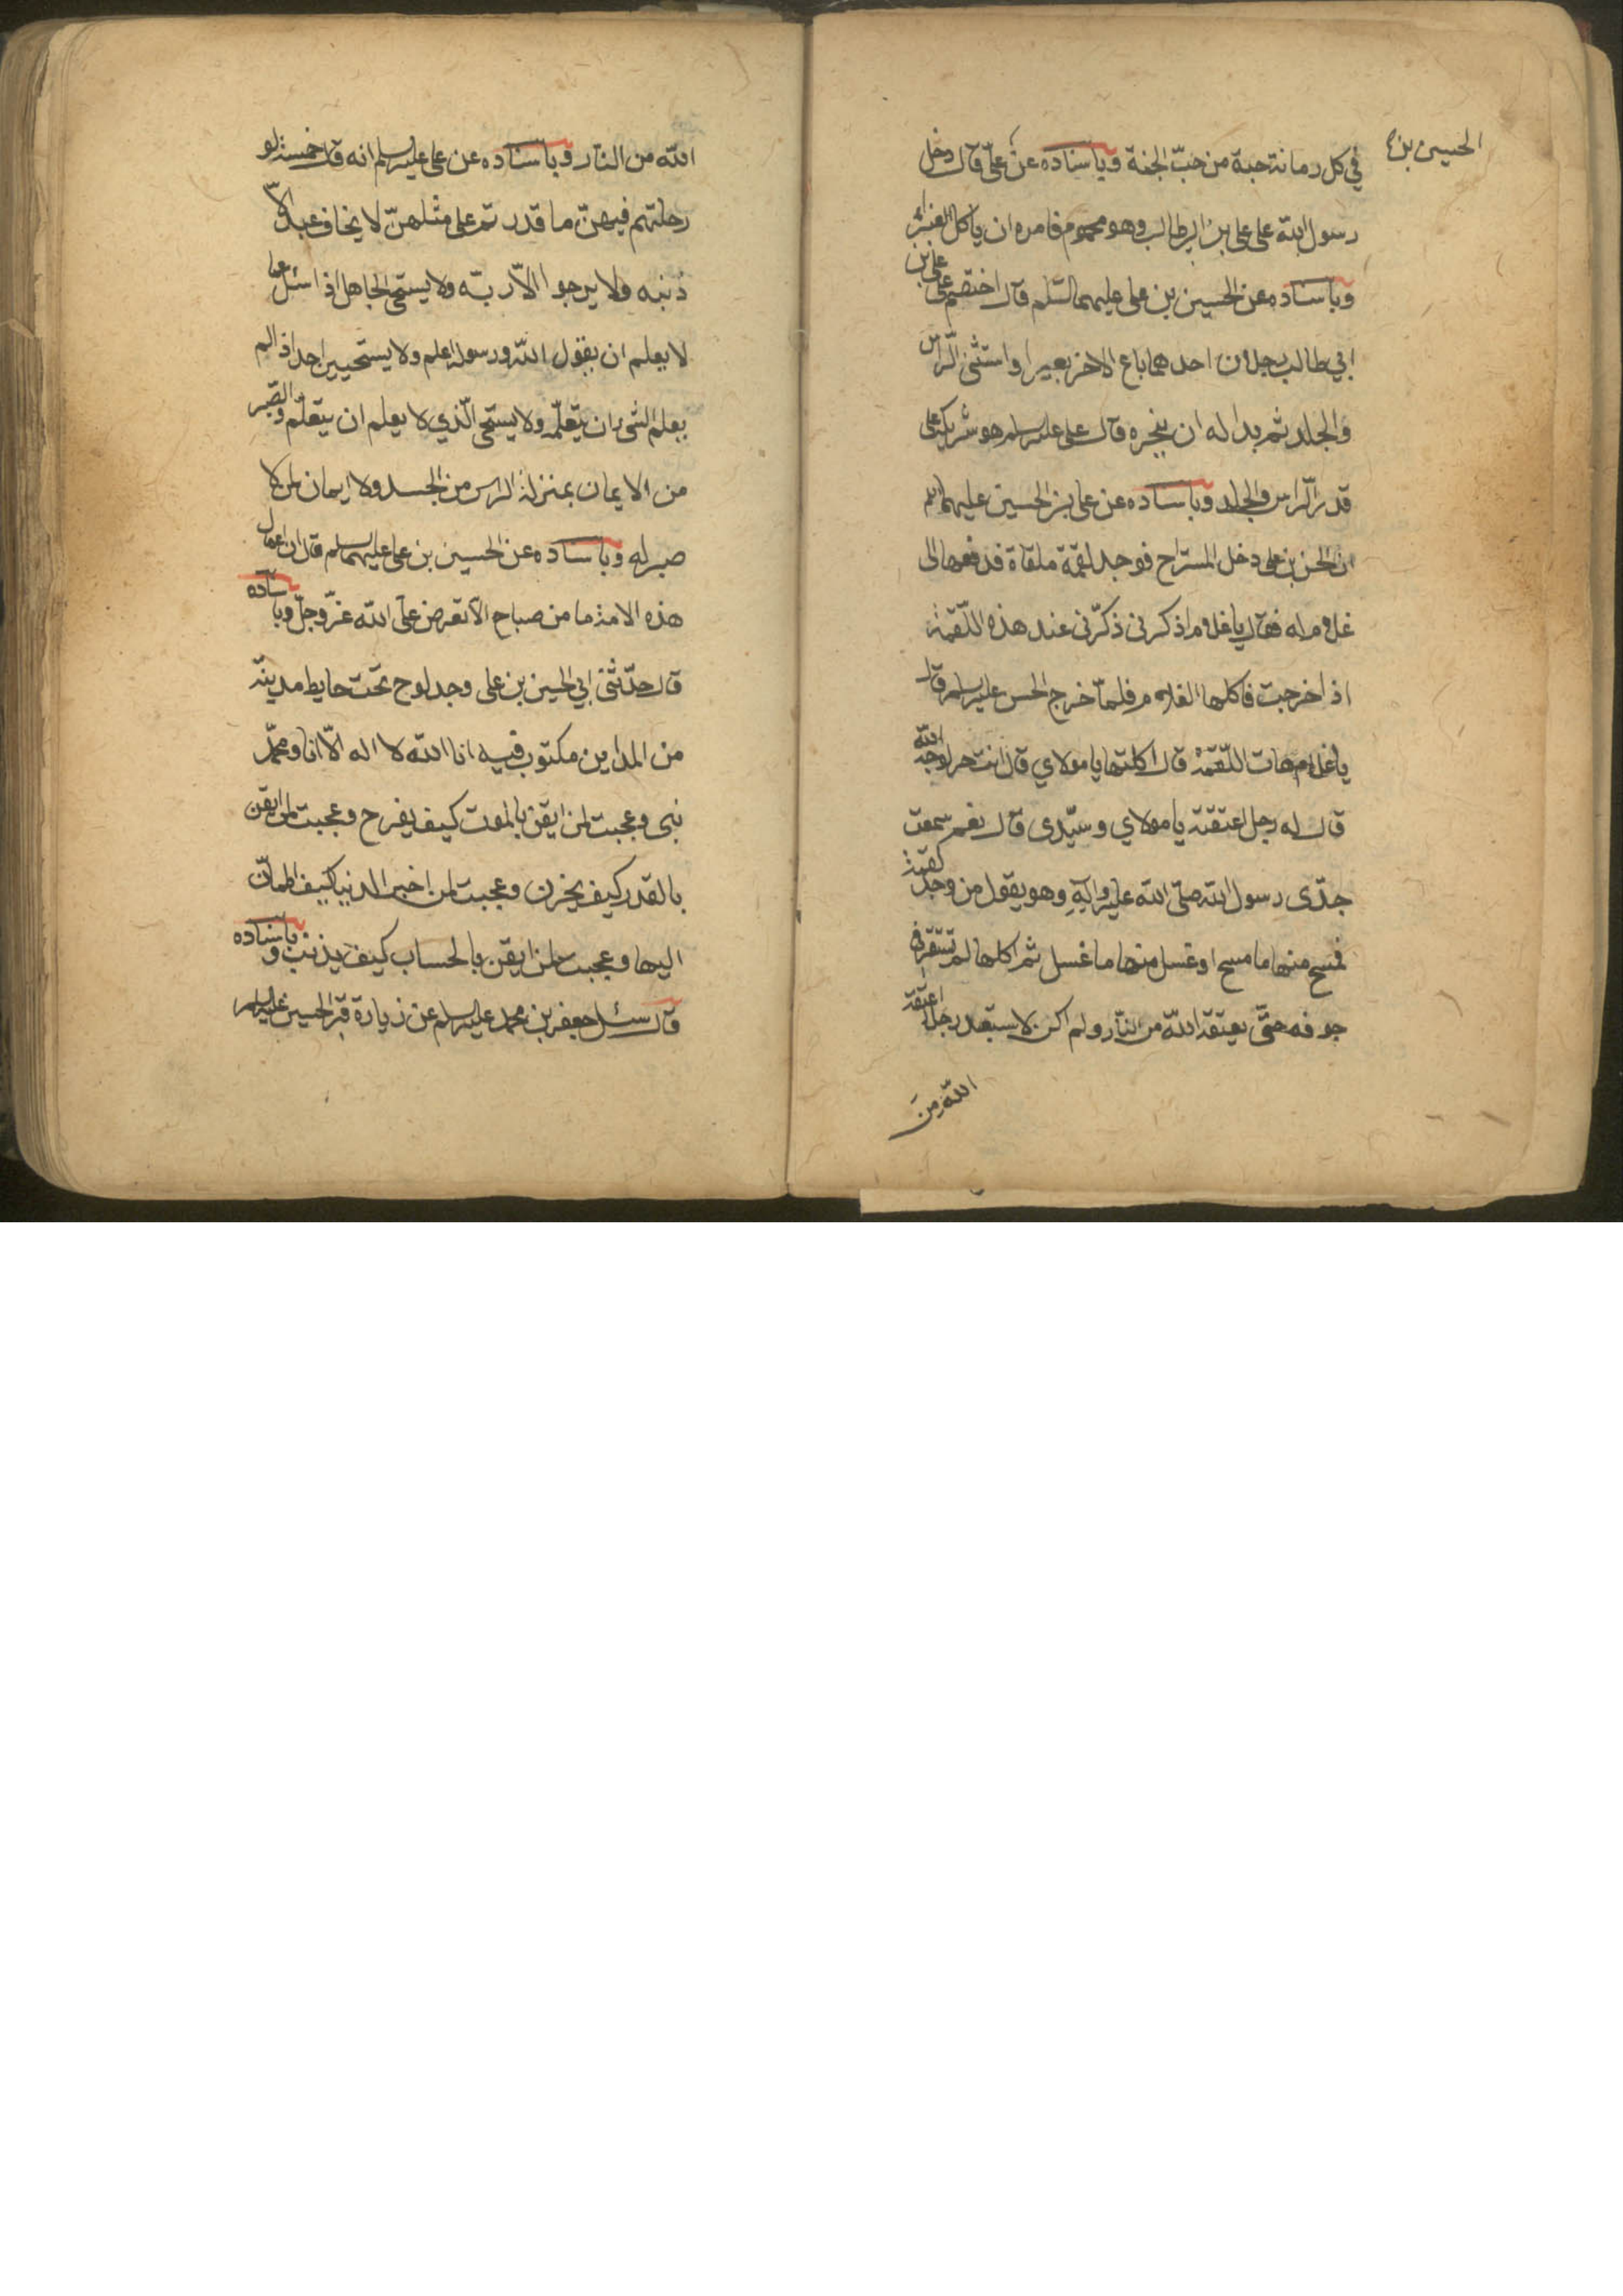 الحسين بن
في كل رمانة حبة من حبّ الجنة وباسناده عن علىّ قال دخل
رسول الله على على بن ابى طالب وهو محموم فامره ان ياكل الغبيرا
وباسناده عن الحسين بن على عليهما السّلم قال اختصم على على بن
ابي طالب رجلان احدهما باع الاخر بعيرا واستثنى الرّاس
والجلد ثم بدا له ان ينحره قال على عليه السلم هو شريكه على
قدر الرّاس والجلد وباسناده عن على بن الحسين عليهما السلم
ان الحسن بن على دخل المستراح فوجد لقمة ملقاة فدفعها الى
غلام له فقال يا غلام اذكرنى ذكّرنى عند هذه اللّقمة
اذا خرجت فاكلها الغلام فلمّا خرج الحسن عليه السلم قال
يا غلام هات اللّقمة قال اكلتها يا مولاي قال انت حر لوجه الله
قال له رجل اعتقته يا مولاي وسيّدى قال نعم سمعت
جدّى رسول الله صلّى الله عليه وآله وهو يقول من وجد لقمة
فمسح منها ما مسح او غسل منها ما غسل ثم اكلها لم تستقر فى
جوفه حتّى يعتقه الله من النّار ولم اكن لاستعبد رجلا اعتقه
الله من
الله من النّار وباسناده عن على عليه السلم انه قال خمسة لو
رحلتم فيهنّ ما قدرتم على مثلهنّ لا يخاف عبد الا
ذنبه ولا يرجوا الّا ربّه ولا يستحى الجاهل اذا سئل عما
لا يعلم ان يقول الله ورسوله اعلم ولا يستحيين احد اذا لم
يعلم الشى ان يتعلّمه ولا يستحى الّذي لا يعلم ان يتعلّم والصّبر
من الايمان بمنزلة الراس من الجسد ولا ايمان لمن لا
صبر له وباسناده عن الحسين بن على عليهما السلم قال ان اعمال
هذه الامة ما من صباح الّا تعرض على الله عزّ وجلّ وباسناده
قال حدّثنى ابي الحسين بن على وجد لوح تحت حايط مدينة
من المداين مكتوب فيه انا الله لا اله الّا انا ومحمّد
نبى وعجبت لمن ايقن بالموت كيف يفرح وعجبت لمن ايقن
بالقدر كيف يحزن وعجبت لمن اختبر الدنيا كيف اطمأنّ
اليها وعجبت لمن ايقن بالحساب كيف يذنب وباسناده
قال سئل جعفر بن محمد عليه السلم عن زيارة قبر الحسين عليه السلم